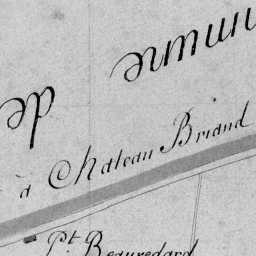 de
à Chateau Briand
Pt. Beauregard